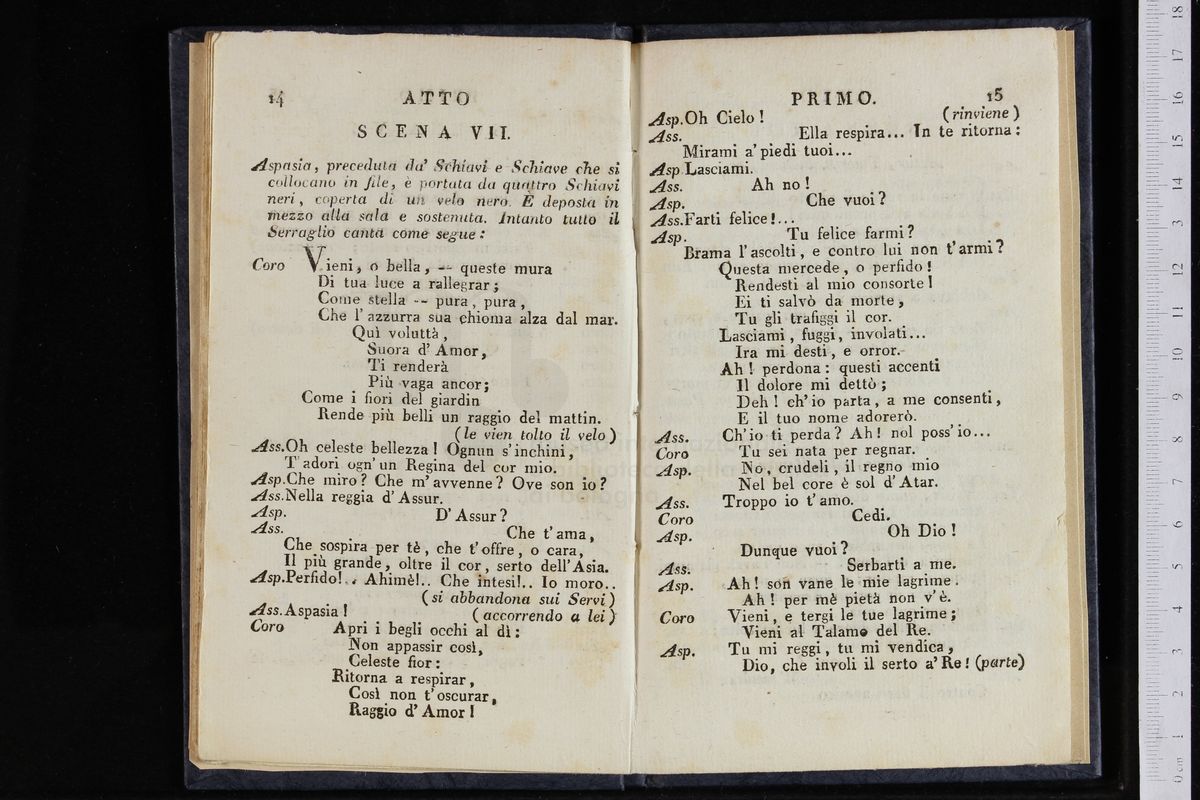 14 ATTO
SCENA VII.
Aspasia, preceduta da' Schiavi e Schiave che si
collocano in file, è portata da quattro Schiavi
neri, coperta di un velo nero. È deposta in
mezzo alla sala e sostenuta. Intanto tutto il
Serraglio canta come segue:
Coro Vieni, o bella, -- queste mura
Di tua luce a rallegrar;
Come stella -- pura, pura,
Che l'azzurra sua chioma alza dal mar.
Quì voluttà,
Suora d'Amor,
Ti renderà
Più vaga ancor;
Come i fiori del giardin
Rende più belli un raggio del mattin.
(le vien tolto il velo)
Ass. Oh celeste bellezza! Ognun s'inchini,
T'adori ogn'un Regina del cor mio.
Asp. Che miro? Che m'avvenne? Ove son io?
Ass. Nella reggia d'Assur.
Asp. D'Assur?
Ass. Che t'ama,
Che sospira per tè, che t'offre, o cara,
Il più grande, oltre il cor, serto dell'Asia.
Asp. Perfido!.. Ahimè!.. Che intesi!.. Io moro..
(si abbandona sui Servi)
Ass. Aspasia! (accorrendo a lei)
Coro Apri i begli occhi al dì:
Non appassir così,
Celeste fior:
Ritorna a respirar,
Così non t'oscurar,
Raggio d'Amor!
PRIMO. 15
Asp. Oh Cielo! (rinviene)
Ass. Ella respira... In te ritorna:
Mirami a'piedi tuoi...
Asp Lasciami.
Ass. Ah no!
Asp. Che vuoi?
Ass. Farti felice!...
Asp. Tu felice farmi?
Brama l'ascolti, e contro lui non t'armi?
Questa mercede, o perfido!
Rendesti al mio consorte!
Ei ti salvò da morte,
Tu gli trafiggi il cor.
Lasciami, fuggi, involati...
Ira mi desti, e orror.
Ah! perdona: questi accenti
Il dolore mi dettò;
Deh! ch'io parta, a me consenti,
E il tuo nome adorerò.
Ass. Ch'io ti perda? Ah! nol poss'io...
Coro Tu sei nata per regnar.
Asp. No, crudeli, il regno mio
Nel bel core è sol d'Atar.
Ass. Troppo io t'amo.
Coro Cedi.
Asp. Oh Dio!
Dunque vuoi?
Ass. Serbarti a me.
Asp. Ah! son vane le mie lagrime.
Ah! per mè pietà non v'è.
Coro Vieni, e tergi le tue lagrime;
Vieni al Talamo del Re.
Asp. Tu mi reggi, tu mi vendica,
Dio, che involi il serto a'Re! (parte)